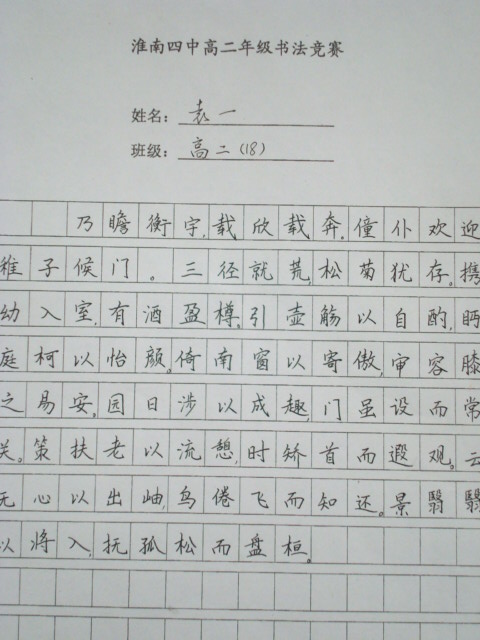 淮南四中高二年级书法竞赛
姓名：袁一
班级：高二（18）
乃瞻衡宇，载欣载奔。僮仆欢迎
稚子候门。三径就荒，松菊犹存。携
幼入室，有酒盈樽。引壶觞以自酌，眄
庭柯以怡颜。倚南窗以寄傲，审容膝
之易安。园日涉以成趣，门虽设而常
关。策扶老以流憩，时矫首而遐观。云
无心以出岫，鸟倦飞而知还。景翳翳
以将入，抚孤松而盘桓。